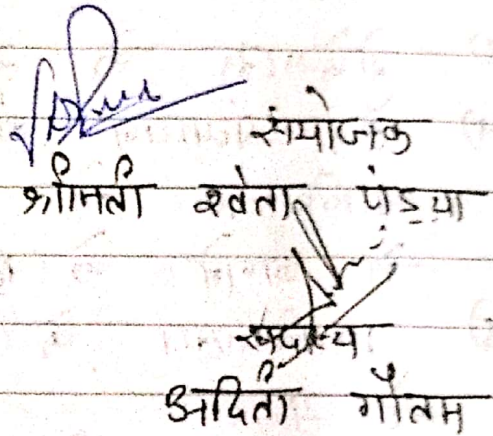 संयोजक
श्रीमती श्वेता पंड्या
सदस्य
अदिती गौतम